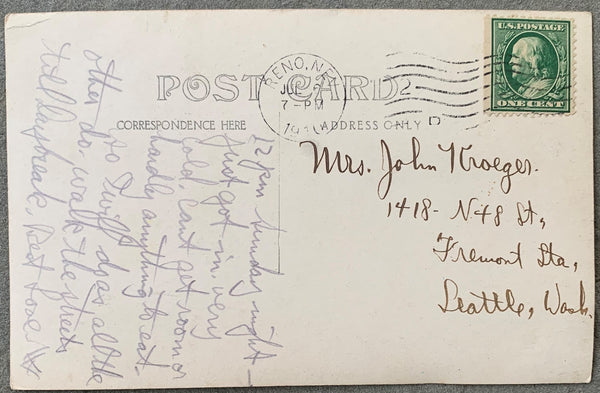 U.S. POSTAGE
ONE CENT
RENO, NEV.
JUL 2
7-PM
1910
D
POST CARD
CORRESPONDENCE HERE
ADDRESS ONLY
12 pm Sunday night—
Just got in, very
cold, can't get room or
hardly anything to eat—
so I will do as all the
others do, walk the streets
till daybreak, Best Love
Mrs. John Kroeger.
1418- N-48 St,
Fremont Sta,
Seattle, Wash.